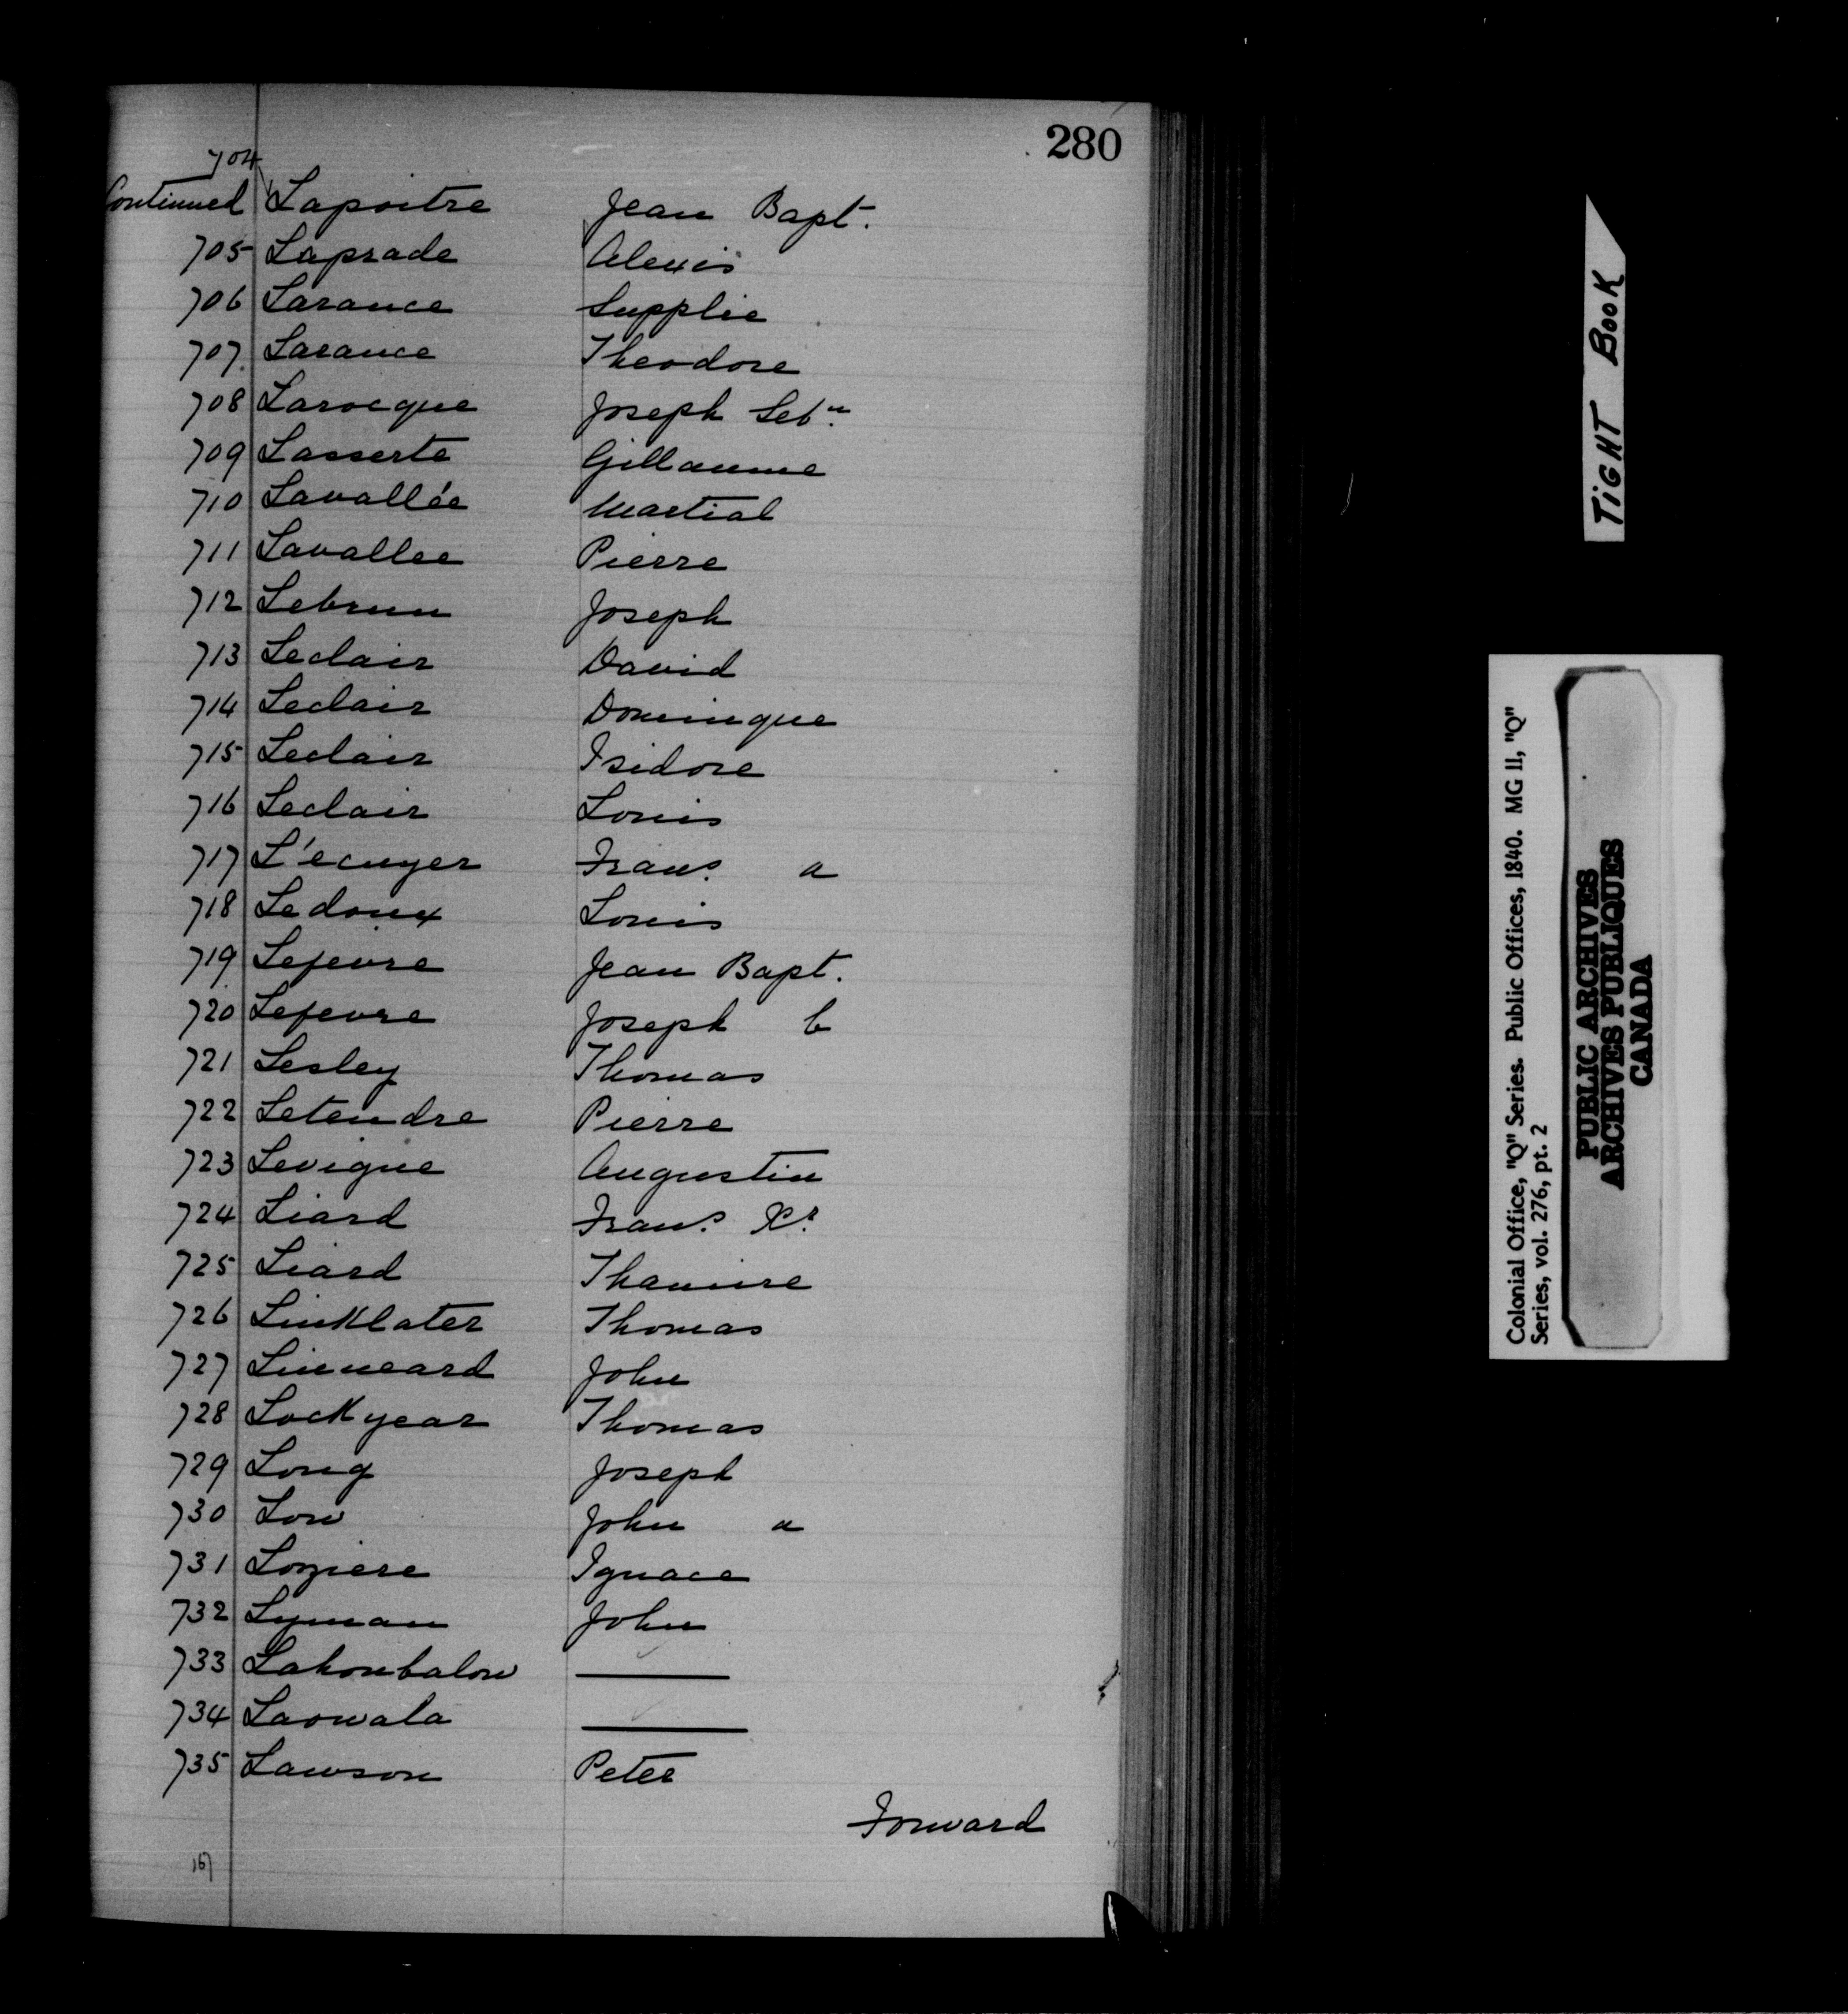 280
704
Continued Lapoitre Jean Bapt.
705 Laprade Alexis
706 Larance Supplie
707. Larance Theodore
708 Larocque Joseph Seb.n
709 Lasserte Gillaume
710 Lavallée Martial
711 Lavallee Pierre
712 Lebrun Joseph
713 Leclair David
714 Leclair Dominque
715 Leclair Isidore
716 Leclair Louis
717 L'ecuyer Frans. a
718 Ledoux Louis
719 Lefevre Jean Bapt.
720 Lefevre Joseph b
721 Lesley Thomas
722 Letendre Pierre
723 Levigne Augustin
724 Liard Frans. Xr.
725 Liard Thamire
726 Linklater Thomas
727 Linneard John
728 Lockyear Thomas
729 Long Joseph
730 Low John a
731 Loziere Ignace
732 Lyman John
733 Lahoubalow ———
734 Laowala ———
735 Lawson Peter
Forward
167
TiGHT BOOK
Colonial Office, "Q" Series. Public Offices, 1840. MG 11, "Q"
Series, vol. 276, pt. 2
PUBLIC ARCHIVES
ARCHIVES PUBLIQUES
CANADA